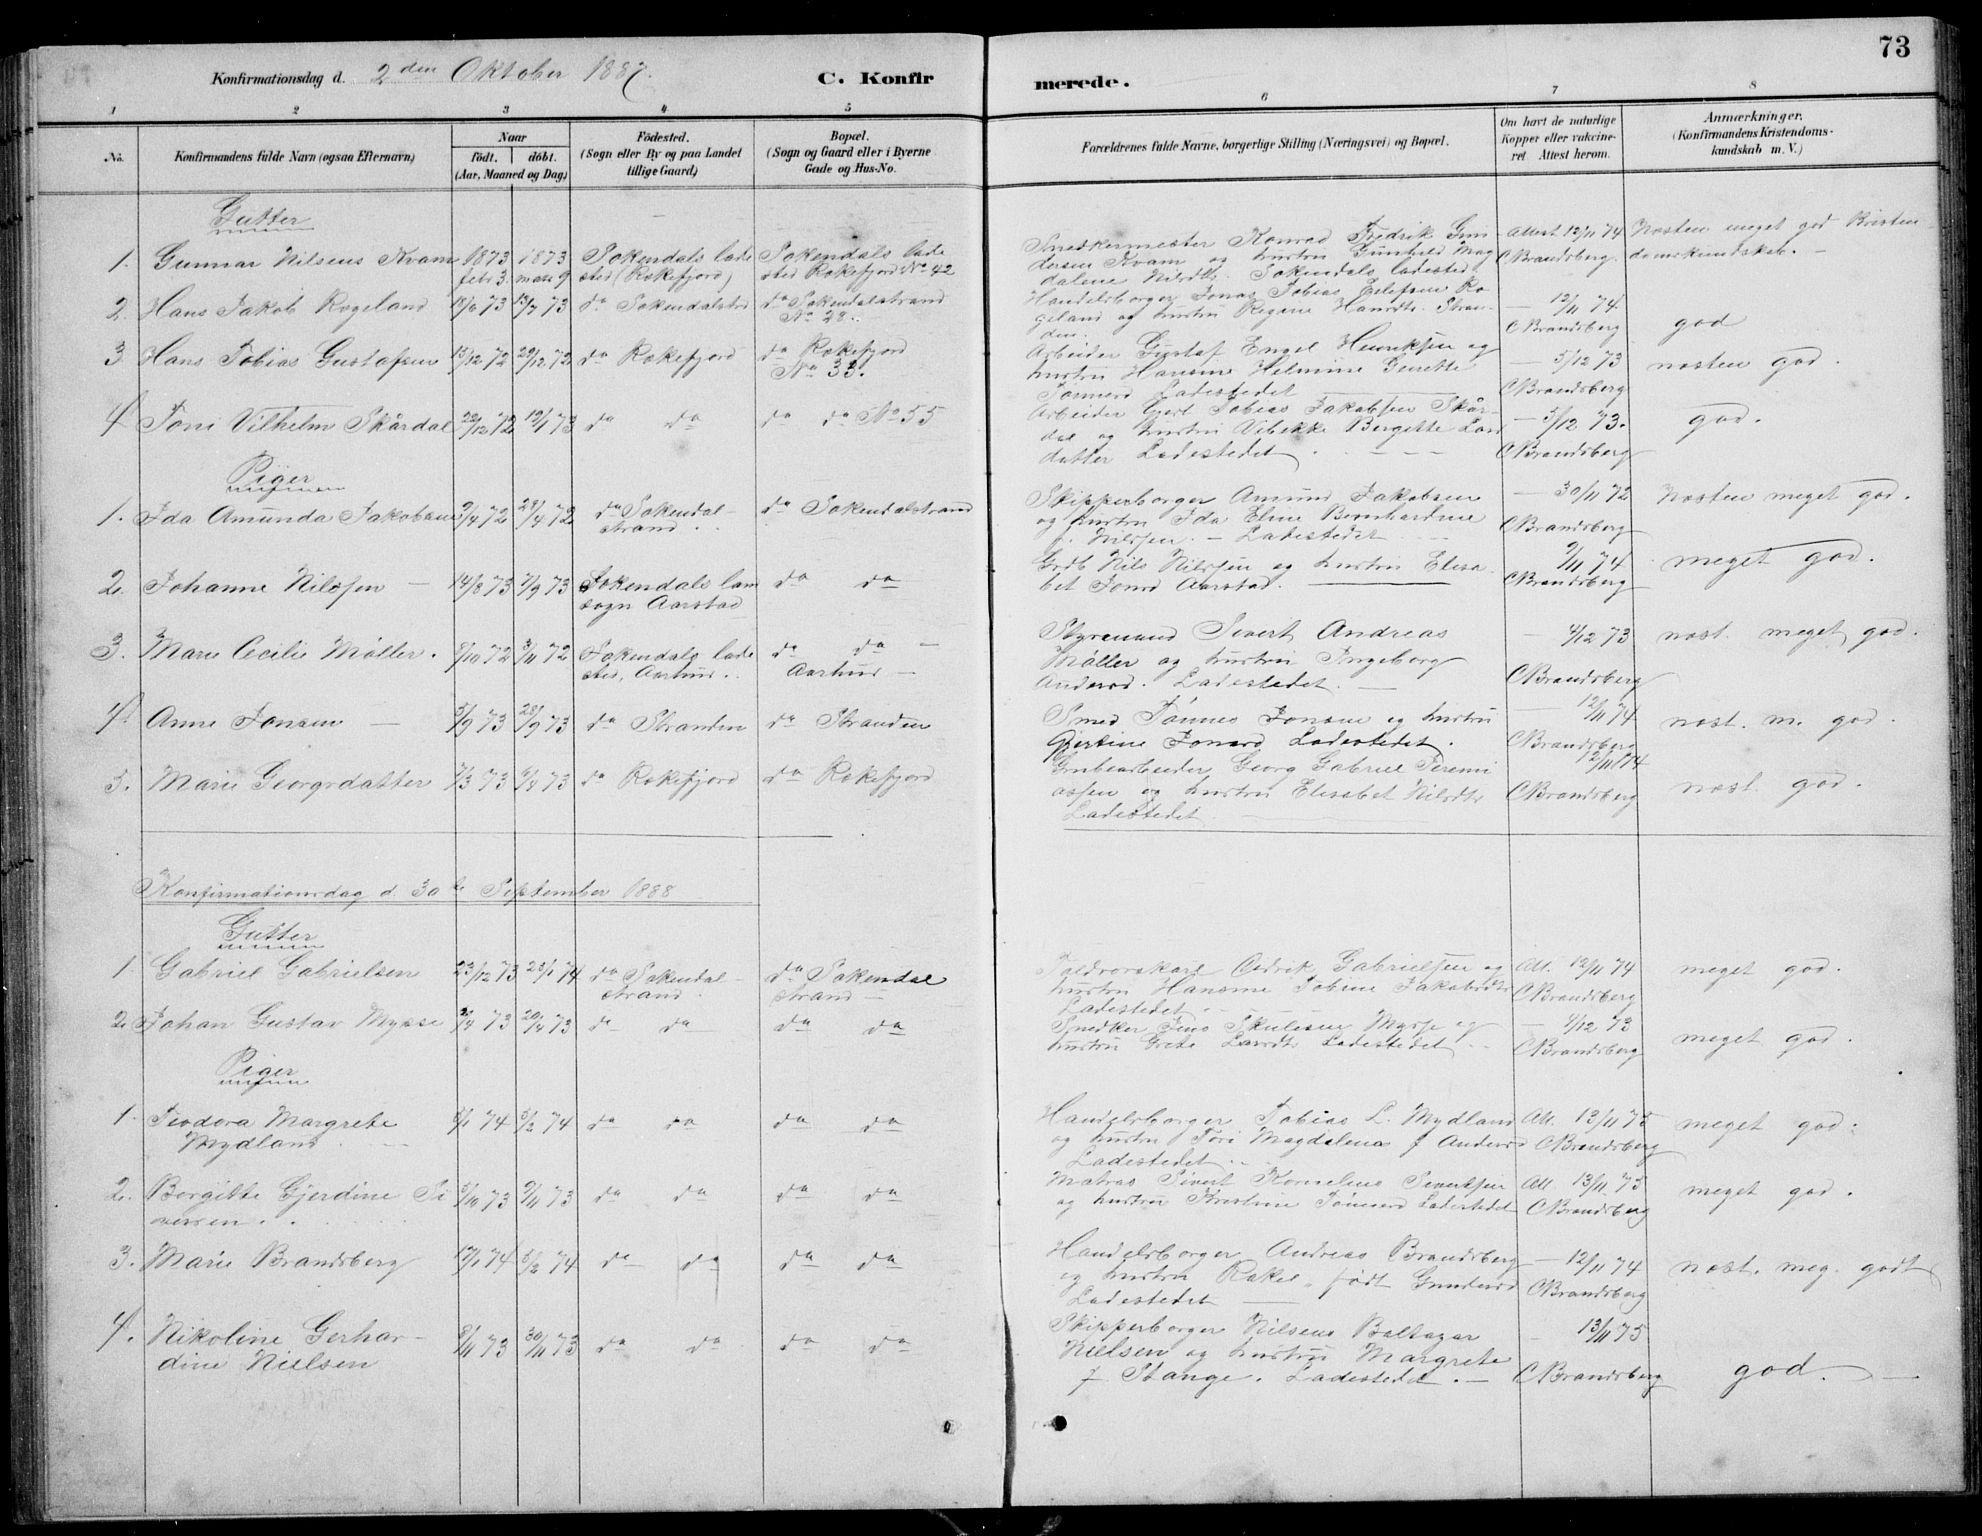 73
Konfirmationsdag d. 2den Oktober 1887.
C. Konfirmerede.
1 2 3 4 5 6 7 8
No.
Konfirmandens fulde Navn (ogsaa Efternavn)
Naar
födt. döbt.
(Aar, Maaned og Dag)
Födested.
(Sogn eller By og paa Landet
tillige Gaard)
Bopæl.
(Sogn og Gaard eller i Byerne
Gade og Hus-No.
Forældrenes fulde Navne, borgerlige Stilling (Næringsvei) og Bopæl.
Om havt de naturlige
Kopper eller vakcine-
ret Attest herom.
Anmærkninger.
(Konfirmandens Kristendoms-
kundskab m. V.)
Gutter
1. Gunnar Nilsens Kvam 1873 1873 Sokendals lade Sokendals lade
febr 3. mars 9 sted (Rekefjord) sted Rekefjord No 42
Snedkermester Konrad Fredrik Gun
dersen Kvam og hustru Gunhild Mag
dalene Nilsdtr. Sokendals ladested.
Attest 12/11 74
CBrandsberg.
Næsten meget god Kristen
domskundskab. —
2. Hans Jakob Rogeland 73 13/7 73 da Sokendalstrd da Sokendalstrand
No 28.
Handelsborger Jonas Tobias Eilefsen Ro
geland og hustru Regine Hansdtr. Stran
den.
— 12/11 74.
CBrandsberg
god
3. Hans Tobias Gustafsen 15/12 72 29/12 72 da Rekefjord da Rekefjord
No 33.
Arbeider Gustaf Engel Henriksen og
hustru Hansine Helmine Gurette
Tønnesd Ladestedet
— 5/12 73
CBrandsberg
næsten god.
4. Toni Vilhelm Skårdal 22/12 72 19/1 73 da da da da No 55
Arbeider Gjert Tobias Jakobsen Skår-
dal og hustru Vibekke Bergette Lars
datter Ladestedet
— 5/12 73.
CBrandsberg
god.
Piger
1. Ida Amunda Jakobsen 9/4 72 28/4 72 da Sokendal-
strand. da Sokendalstrand
Skipperborger Amund Jakobsen
og hustru Ida Eline Bernhardine
f. Nilssen. — Ladestedet
— 30/11 72
CBrandsberg
Næsten meget god.
2. Johanne Nilssen — 14/8 73 7/9 73 Sokendals lan
sogn Aarstad da da
Grdb Nils Nilssen og hustru Elisa
bet Jonsd Aarstad.
9/11 74
CBrandsberg
meget god.
3. Marie Cecilie Møller. 9/10 72 3/11 72 Sokendals lade
sted, Aarhus. da da —
Aarhus —
Styrmand Sivert Andreas
Møller og hustru Ingeborg
Andersd. Ladestedet. —
— 4/12 73
CBrandsberg
næst. meget god.
4. Anne Jonsen — 5/9 73 28/9 73 da Stranden da Stranden
Smed Tønnes Jonsen og hustru
Gjertine Jonasd Ladestedet.
— 12/11 74
CBrandsberg
næst. m. god.
5. Marie Georgsdatter 7/3 73 6/4 73 da Rekefjord da Rekefjord
Grubearbeider Georg Gabriel Jeremi
assen og hustru Elisabet Nilsdtr
Ladestedet
12/11 74
CBrandsberg
næst. god.
Konfirmationsdag d. 30te September 1888
Gutter
1. Gabriel Gabrielsen 23/12 73 25/1 74 da Sokendal-
strand. da Sokendal
strand —
Cedrik Gabrielsen og
hustru Hansine Tobine Jakobsdtr
Ladestedet
Att. 12/11 74
CBrandsberg
meget god.
2. Johan Gustav Mysse 73 20/4 73 da da da da
Snedker Jens Skulesen Mysse og
hustru Grete Larsdtr Ladestedet
— 4/12 73
CBrandsberg
meget god.
Piger
1. Teodora Margrete
Mydland 74 5/2 74 da da da da
Handelsborger Tobias L. Mydland
og hustru Tori Magdalena f Andersd
Ladestedet
Att. 13/11 75
CBrandsberg
meget god.
2. Bergitte Gjerdine Si
versen. 5/10 73 9/11 73 da da da da
Matros Sivert Kornelius Sivertsen
og hustru Kristine Tønnesd Ladestedet
Att. 13/11 75
CBrandsberg
meget god.
3. Marie Brandsberg 17/1 74 5/2 74 da da da da
Handelsborger Andreas Brandsberg
og hustru Rakel født Gundersd
Ladestedet
— 12/11 74
CBrandsberg
næst. meg. godt
4. Nikoline Gerhar-
dine Nielsen 8/11 73 30/11 73 da da da da
Skipperborger Nilsens Baltazar
Nielsen og hustru Margrete
f. Stange. Ladestedet. —
— 13/11 75
CBrandsberg
god. —